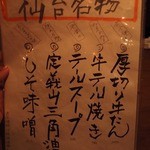 仙台名物
厚切り牛たん
牛テール焼き
テールスープ
定義山三角
しそ味噌